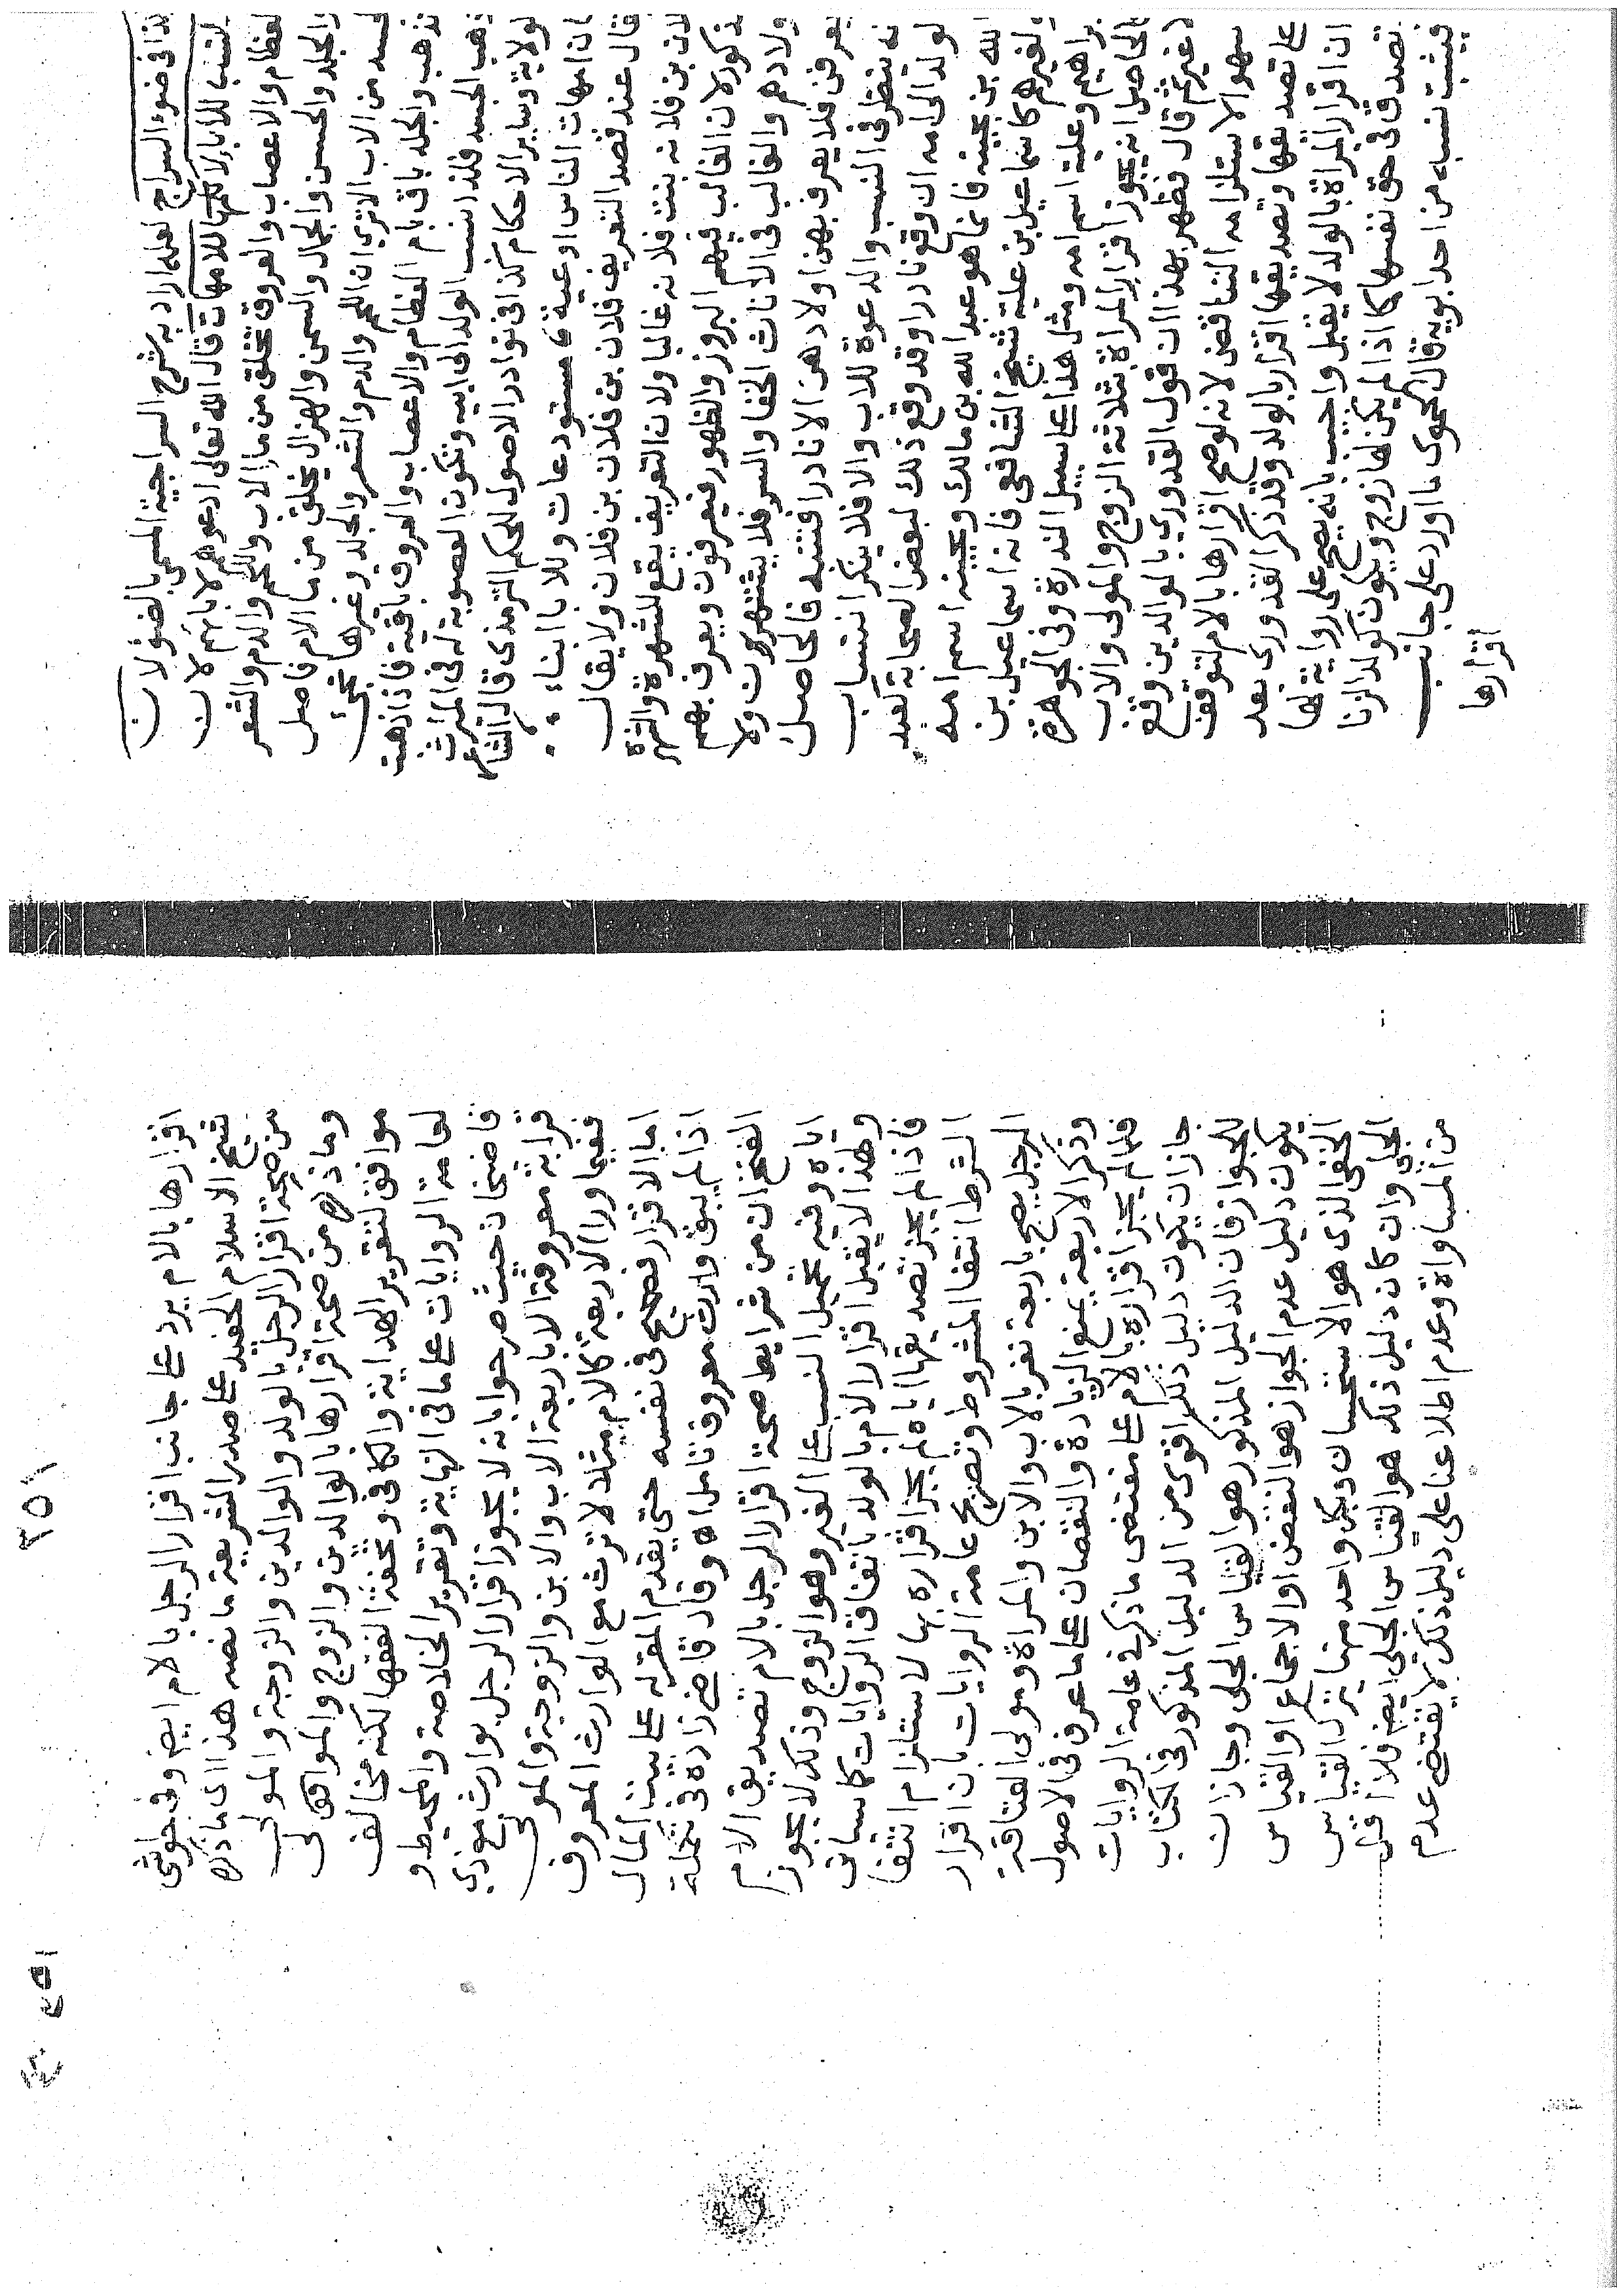 لذا فى ضوء السراج لعله اراد به شرح السراجية المسمى بالضوء لان
النسب للاباء لا للامهات قال الله تعالى ادعوهم لابائهم لان
لعظام والاعصاب والعروق تخلق من ماء الاب واللحم والدم والشعر
والجلد والحسن والجمال والسمن والهزال يخلق من ماء الام فاصل
لجسد من الاب الاترى ان اللحم والدم والشعر والجلد وغيرها تجئ
تذهب والجلد باق بام العظام والاعصاب والعروق باقية فاذا ذهبت
ذهب الجسد فلذا نسب الولد الى ابيه وتكون العصوبة له فى الميراث
لولاية وساير الاحكام كذا فى نوادر الاصول للحكيم الترمذى قال الشاعر
فان امهات الناس اوعية مستودعات وللابا ابناء
قال عند قصد التعريف فلان بن فلان بن فلان ولا يقال
لان بن فلانه بنت فلانه غالبا ولان التعريف يقع للشهرة والشهرة
ذكور لان الغالب فيهم البروز والظهور فيعرفون ويعرف بهم
ولادهم والغالب فى الاناث الخفا والستر فلا يشتهرون ولا
يعرفن فلا يعرف بهن اولادهن الا نادرا فتنبه فالحاصل
نه ينظر فى النسب والدعوة للاب والا فلا ينكر انتساب
لولد الى امه ان وقع نادرا وقد وقع ذلك لبعض الصحابة كعبد
الله بن بحينه فانما هو عبد الله بن مالك وبحينه اسم امه
ولغيرهم كاسماعيل بن علية شيخ الشافعى فانه اسماعيل بن
براهيم وعلية اسم امه ومثل هذا على سبيل الندرة وفى الجوهرة
الحاصل انه يجوز اقرار المراة بثلاثة الزوج والمولى والاب
لا غير ثم قال فظهر بهذا ان قول القدورى بالوالدين وقع
سهوا لاستلزامه التناقض لانه لو صح اقرارها بالام لتوقف
على تصديقها وتصديقها اقرار بالولد وقد ذكر القدورى بعد
ان اقرار المراة بالولد لا يقبل واجيب بانه يصح على رواية انها
تصدق فى حق نفسها كما اذا لم يكن لها زوج ويكون كولد الزنا
فيثبت نسبه من احد ابويه قال الحموى ما اورد على جانب
اقرارها
اقرارها بالام يرد على جانب اقرار الرجل بالام ايض وفى حواشى
شيخ الاسلام الحفيد على صدر الشريعة ما نصه هذا اى ما ذكره
من صحة اقرار الرجل بالولد والوالدين والزوجة والمولى
وما ذكره من صحة اقرارها بالوالدين والزوج والمولى
موافق لتقرير الهداية والكافى وتحفة الفقها لكنه مخالف
لعامة الروايات على ما فى النهاية وتقرير الخلاصة والمحيط و
قاضيخان حيث صرحوا بانه لا يجوز اقرار الرجل بوارث مع ذى
قرابة معروفة الا باربعة الاب والابن والزوجة والمولى
ففيما ورا الاربعة كالام مثلا لا ترث مع الوارث المعروف
اما الاقرار فصحيح فى نفسه حتى يقدم المقر له على بيت المال
اذا لم يبق وارث معروف تامل اه وقال قاضى زاده فى تكملة
الفتح ان من شرايط صحة اقرار الرجل بالام تصديق الام
اياه وفيه تحميل النسب على الغير وهو الزوج وذلك لا يجوز
ولهذا لا يقبل اقرار الام بالولد باتفاق الروايات كما سياتى
فاذا لم يجز تصديقها اياه لم يجز اقراره بها لاستلزام انتفا
الشرط انتفا المشروط وتصريح عامة الروايات بان اقرار
الرجل يصح باربعة نفر بالاب والابن والمراة ومولى العتاقة
وذكر الاربعة يمنع الزيادة والنقصان على ما عرف فى الاصول
فلما لم يجز اقراره بالام على مقتضى ما ذكر فى عامة الروايات
جاز ان يكون دليل ذلك اقوى من الدليل المذكور فى الكتاب
للجواز فان الدليل المذكور هو القياس الجلى وجاز ان
يكون دليل عدم الجواز هو النقض او الاجماع او القياس
الخفى الذى هو الاستحسان وبكل واحد منها يترك القياس
الجلى وان كان دليل ذلك هو القياس الجلى ايض فلا اقل
من المساواة وعدم اطلاعنا على دليل ذلك لا يقتضى عدم